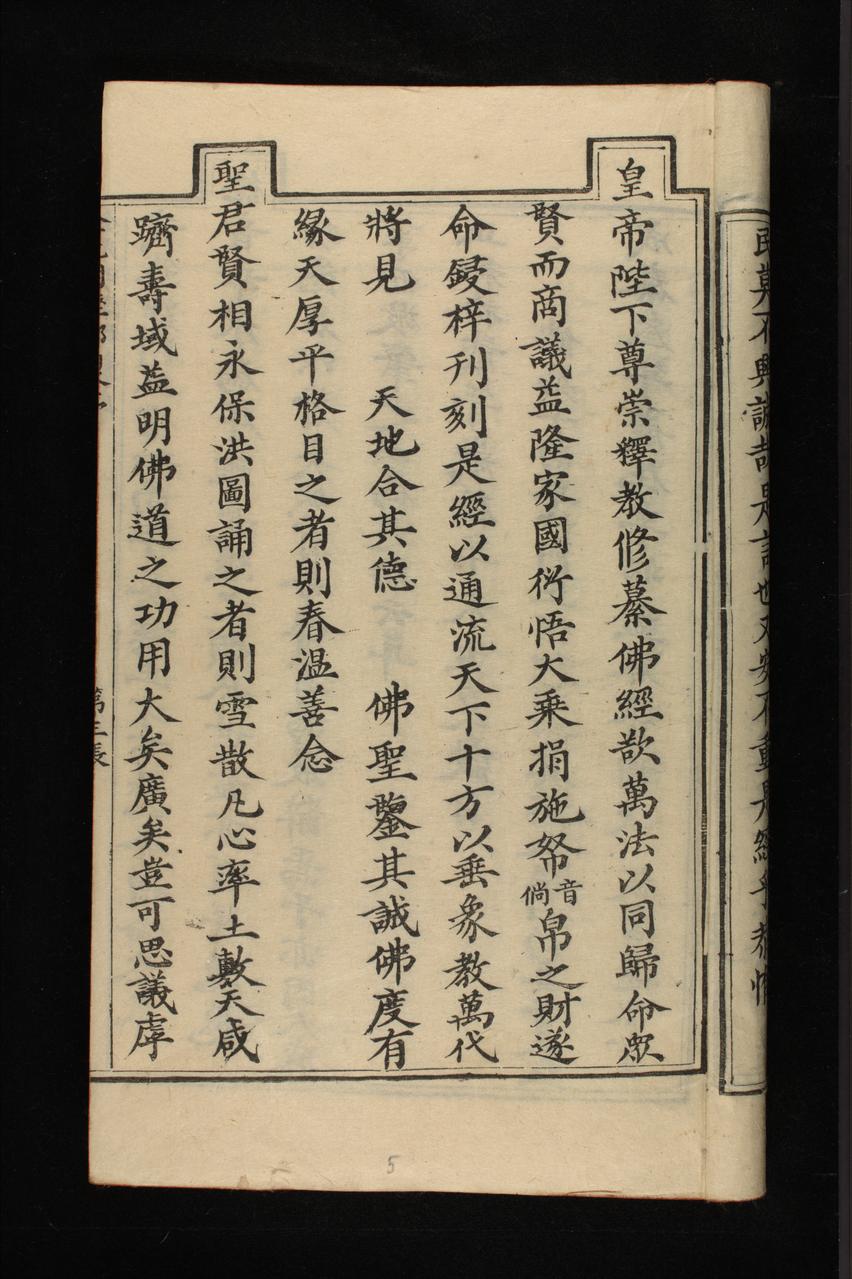 民莫不興誠哉是言也又安不重是經乎恭惟
皇帝陛下尊崇釋教修纂佛經歆萬法以同歸命眾
賢而商議益隆家國衍悟大乘捐施帑音倘帛之財遂
命鋟梓刊刻是經以通流天下十方以垂象教萬代
將見 天地合其德 佛聖鑒其誠佛度有
緣天厚平格目之者則春溫善念
聖君賢相永保洪圖誦之者則雪散凡心率土敷天咸
躋壽域益明佛道之功用大矣廣矣豈可思議虖
第三張